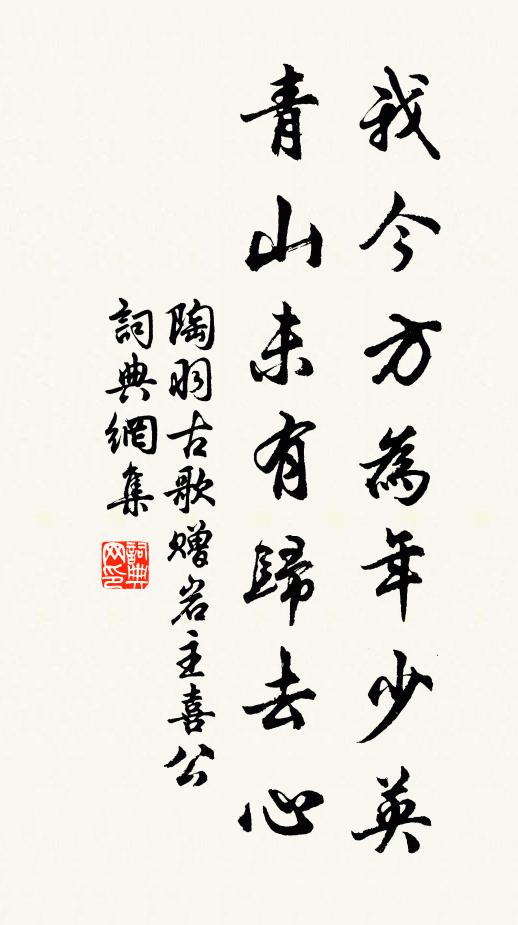 我今方為年少英
青山未有歸去心
陶羽古歌贈岩主喜公
詞典網集
詞典网印